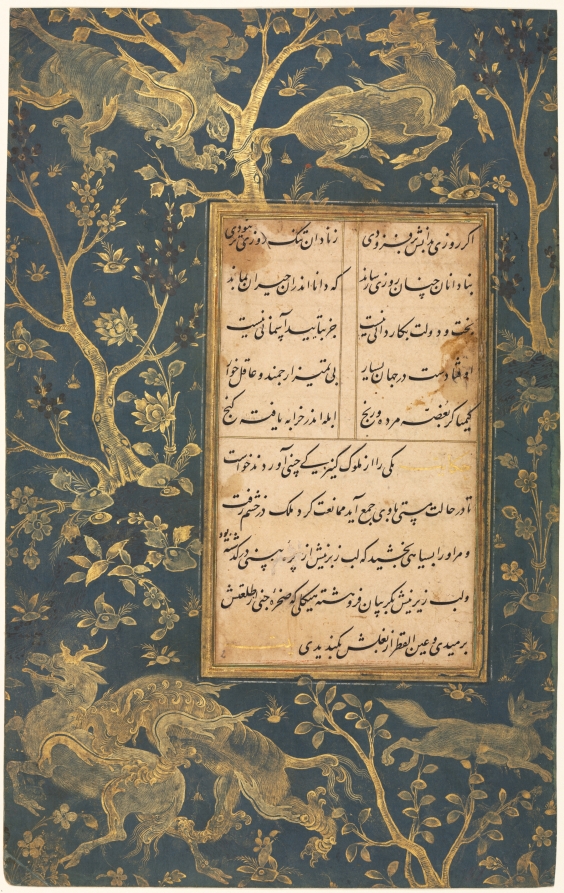 اگر روزی بدانش بر فزودی ز نادان تنگ روزی تر نبودی
بنادانان چنان روزی رساند که دانا اندران حیران بماند
بخت و دولت بکاردانی نیست جز بتایید آسمانی نیست
اوفتادست در جهان بسیار بی تمیز ارجمند و عاقل خوار
کیمیاگر بغصه مرده و رنج ابله اندر خرابه یافته گنج
یکی را از ملوک کنیزکی چینی آوردند خواست
تا در حالت مستی با وی جمع آید ممانعت کرد ملک در خشم رفت
و مر او را بسیاهی بخشید که لب زبرینش از پره بینی در گذشته بود
ولب زیرینش بگریبان فروهشته هیکلی که صخره جنی از طلعتش
برمیدی و عین القطر از بغلش بگندیدی